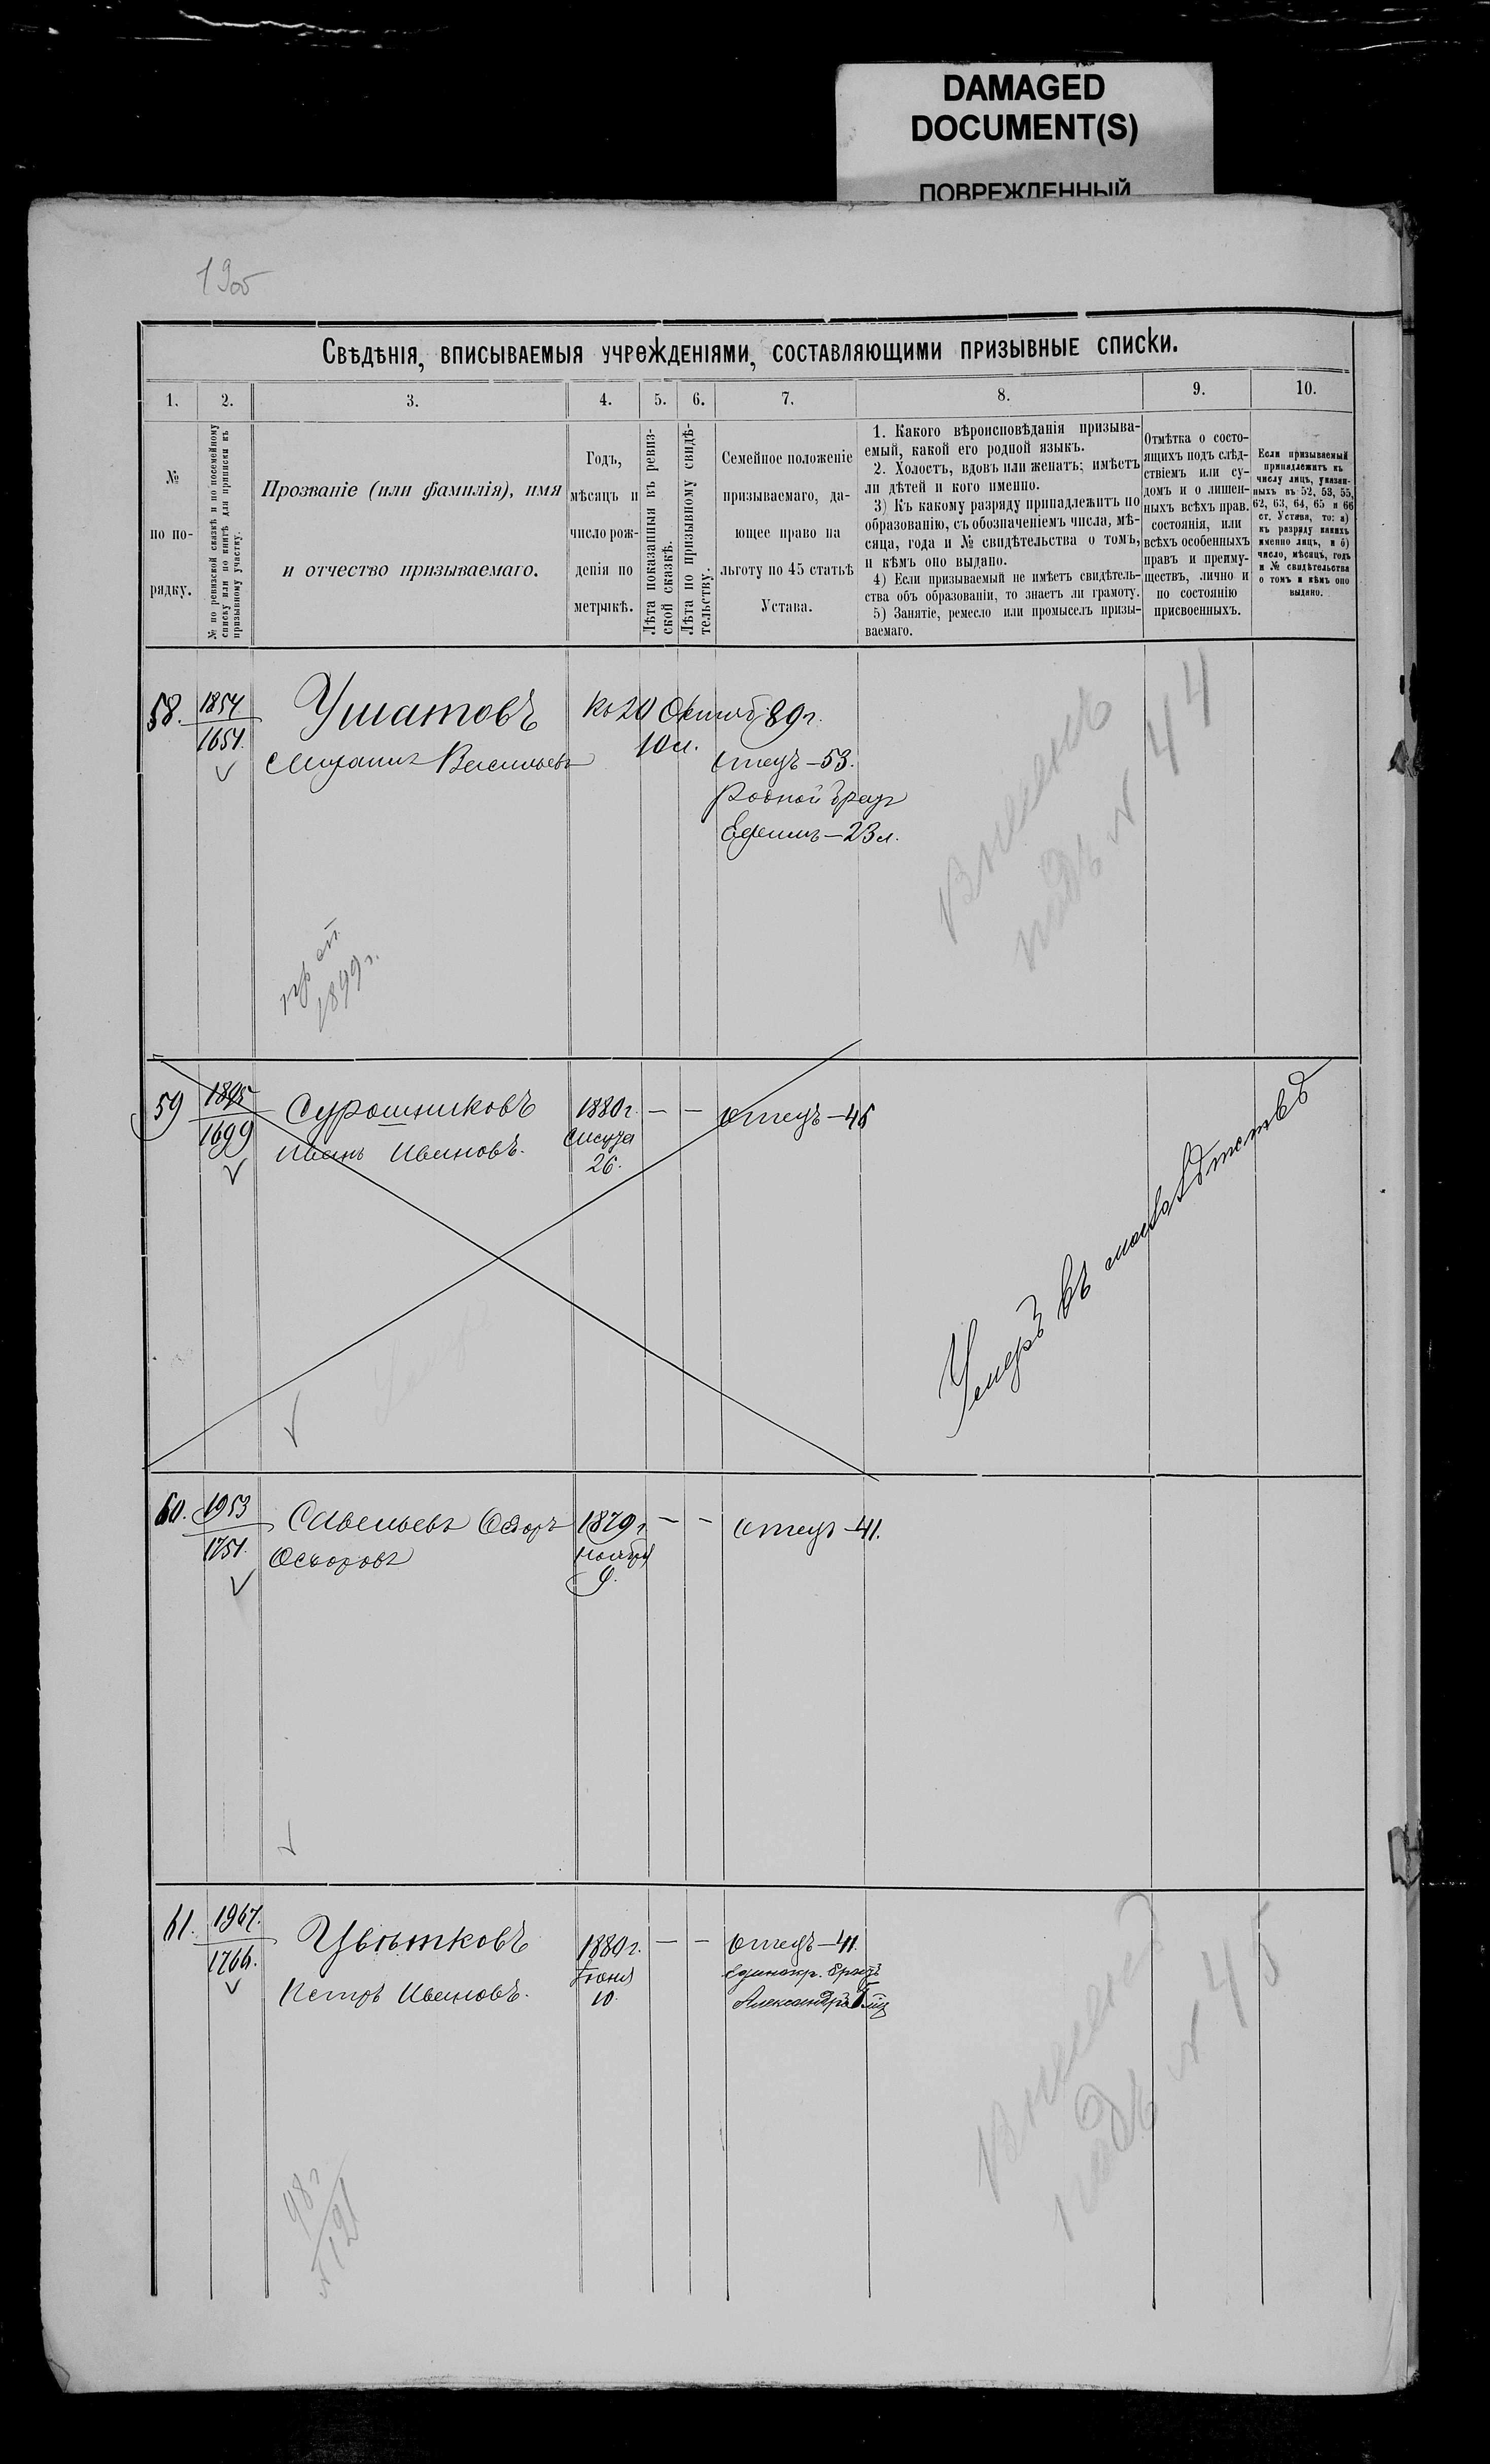 DAMAGED
DOCUMENT(S)
ПОВРЕЖДЕННЫЙ
1900
Свѣдѣнія, вписываемыя учрежденіями, составляющими призывные списки.
1.
2.
3.
4.
5.
6.
7.
8.
9.
10.
№
по по-
рядку.
№ по ревизской сказкѣ и по посемейному
списку или по книгѣ для приписки къ
призывному участку.
Прозваніе (или фамилія), имя
и отчество призываемаго.
Годъ,
мѣсяцъ и
число рож-
денія по
метрикѣ.
Лѣта показанныя въ ревиз-
ской сказкѣ.
Лѣта по призывному свидѣ-
тельству.
Семейное положеніе
призываемаго, да-
ющее право на
льготу по 45 статьѣ
Устава.
1. Какого вѣроисповѣданія призыва-
емый, какой его родной языкъ.
2. Холостъ, вдовъ или женатъ; имѣетъ
ли дѣтей и кого именно.
3) Къ какому разряду принадлежитъ по
образованію, съ обозначеніемъ числа, мѣ-
сяца, года и № свидѣтельства о томъ,
и кѣмъ оно выдано.
4) Если призываемый не имѣетъ свидѣтель-
ства объ образованіи, то знаетъ ли грамоту.
5) Занятіе, ремесло или промыселъ призы-
ваемаго.
Отмѣтка о состо-
ящихъ подъ слѣд-
ствіемъ или су-
домъ и о лишен-
ныхъ всѣхъ прав.
состоянія, или
всѣхъ особенныхъ
правъ и преиму-
ществъ, лично и
по состоянію
присвоенныхъ.
Если призываемый
принадлежитъ къ
числу лицъ, указан-
ныхъ въ 52, 53, 55,
62, 63, 64, 65 и 66
ст. Устава, то: а)
къ разряду какихъ
именно лицъ, и б)
число, мѣсяцъ, годъ
и № свидѣтельства
о томъ и кѣмъ оно
выдано.
58.
1854
1654.
Ушатовъ
Васильевъ
Къ 20 Октяб. 89 г.
10 л.
отецъ – 53.
Родной братъ
Ефимъ – 23 л.
Внесенъ
подъ № 44
1899 г.
59
1895
1699
Сурошниковъ
Иванъ Ивановъ.
1880 г.
26.
— —
отецъ – 45
Умеръ въ малолѣтствѣ
60.
1953
1751.
Савельевъ Ѳедоръ
Ѳедоровъ
1879 г.
ноября
9.
— —
отецъ – 41.
61.
1967.
1766.
Цвѣтковъ
Петръ Ивановъ.
1880 г.
Іюня
10.
— —
отецъ – 41.
Единокр. братъ
Александръ
Внесенъ
подъ № 45
98 г
№ 121